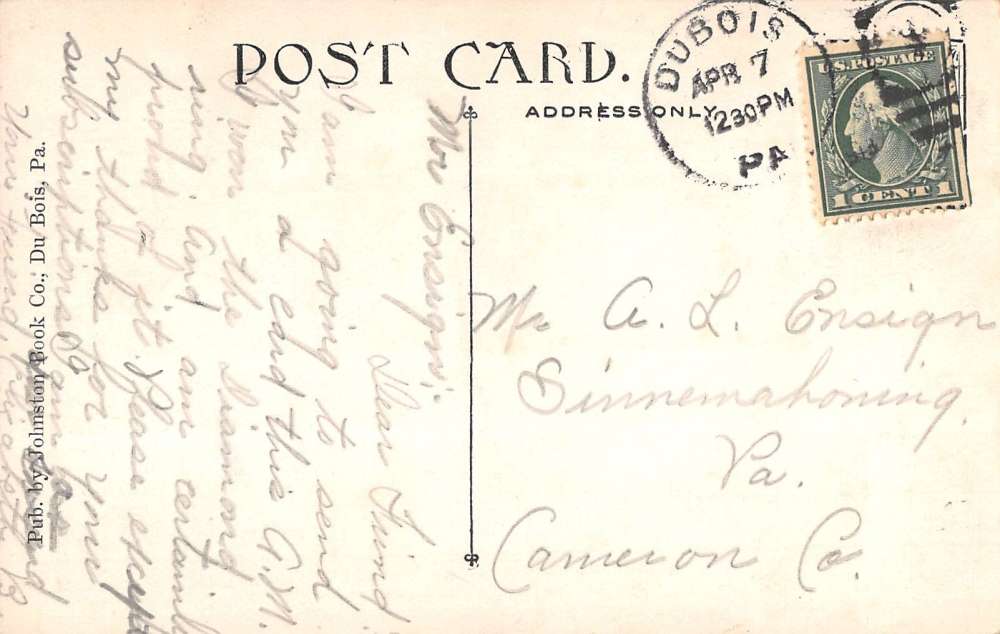 POST CARD.
ADDRESS ONLY
DUBOIS
APR 7
1230PM
PA
U.S. POSTAGE
1 CENT 1
Mr A. L. Ensign
Sinnemahoning
Pa.
Cameron Co.
Mr Ensign:
Dear Friend
I am going to send
you a card this A.M.
I won the diamond
ring and am certainly
proud of it Please accept
my thanks for your
subscription I am
Your friend
Pub. by Johnston Book Co., Du Bois, Pa.